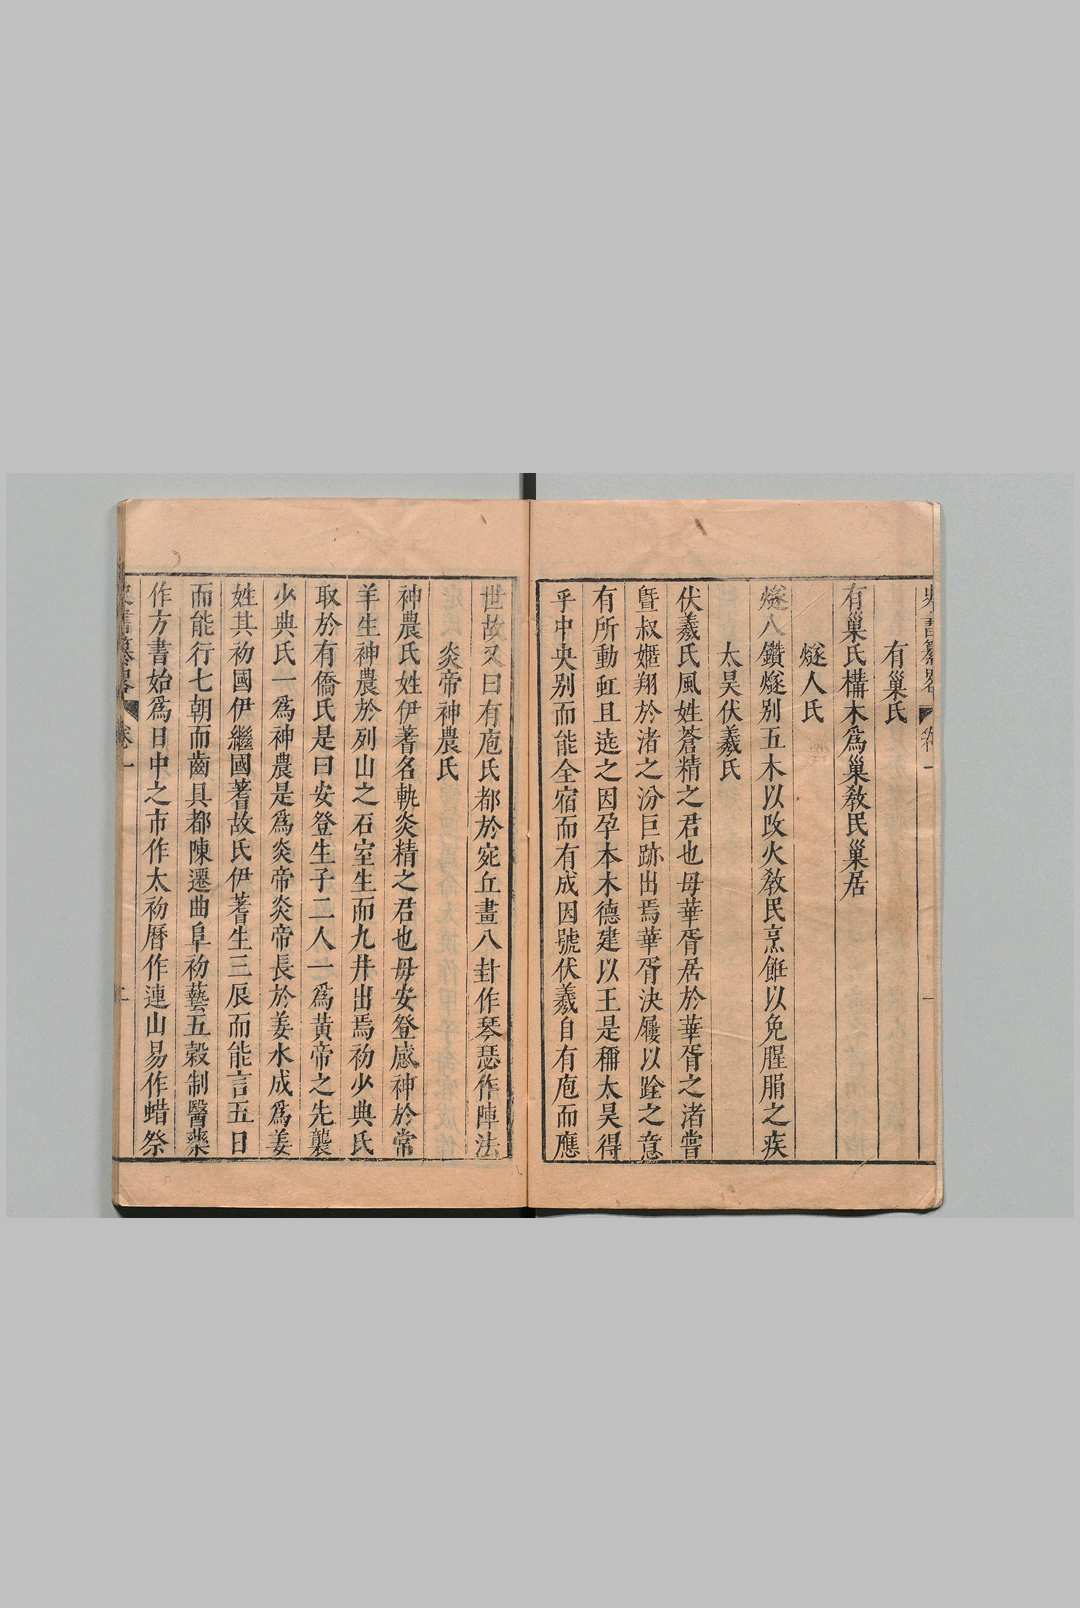 史書纂畧 卷一 一
有巢氏
有巢氏構木爲巢敎民巢居
燧人氏
燧人鑽燧別五木以改火敎民烹飪以免腥腸之疾
太昊伏羲氏
伏羲氏風姓蒼精之君也母華胥居於華胥之渚嘗
曁叔嫟翔於渚之汾巨跡出焉華胥決履以跧之意
有所動虹且遶之因孕本木德建以王是稱太昊得
乎中央別而能全宿而有成因號伏羲自有庖而應
世故又曰有庖氏都於宛丘畫八卦作琴瑟作陣法
炎帝神農氏
神農氏姓伊耆名軌炎精之君也母安登感神於常
羊生神農於列山之石室生而九井出焉初少典氏
取於有僑氏是曰安登生子二人一爲黃帝之先襲
少典氏一爲神農是爲炎帝炎帝長於姜水成爲姜
姓其初國伊繼國耆故氏伊耆生三辰而能言五日
而能行七朝而齒具都陳遷曲阜初藝五穀制醫藥
作方書始爲日中之市作太初曆作連山易作蜡祭
史書纂畧 卷一 二